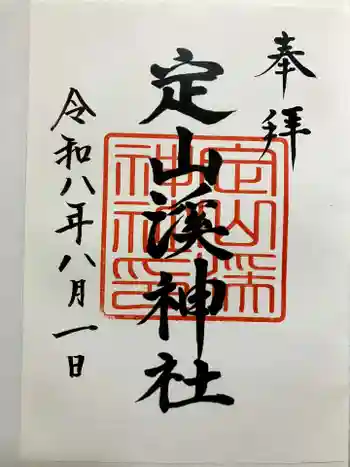 奉拝
定山渓神社
令和八年八月一日
定山渓神社印